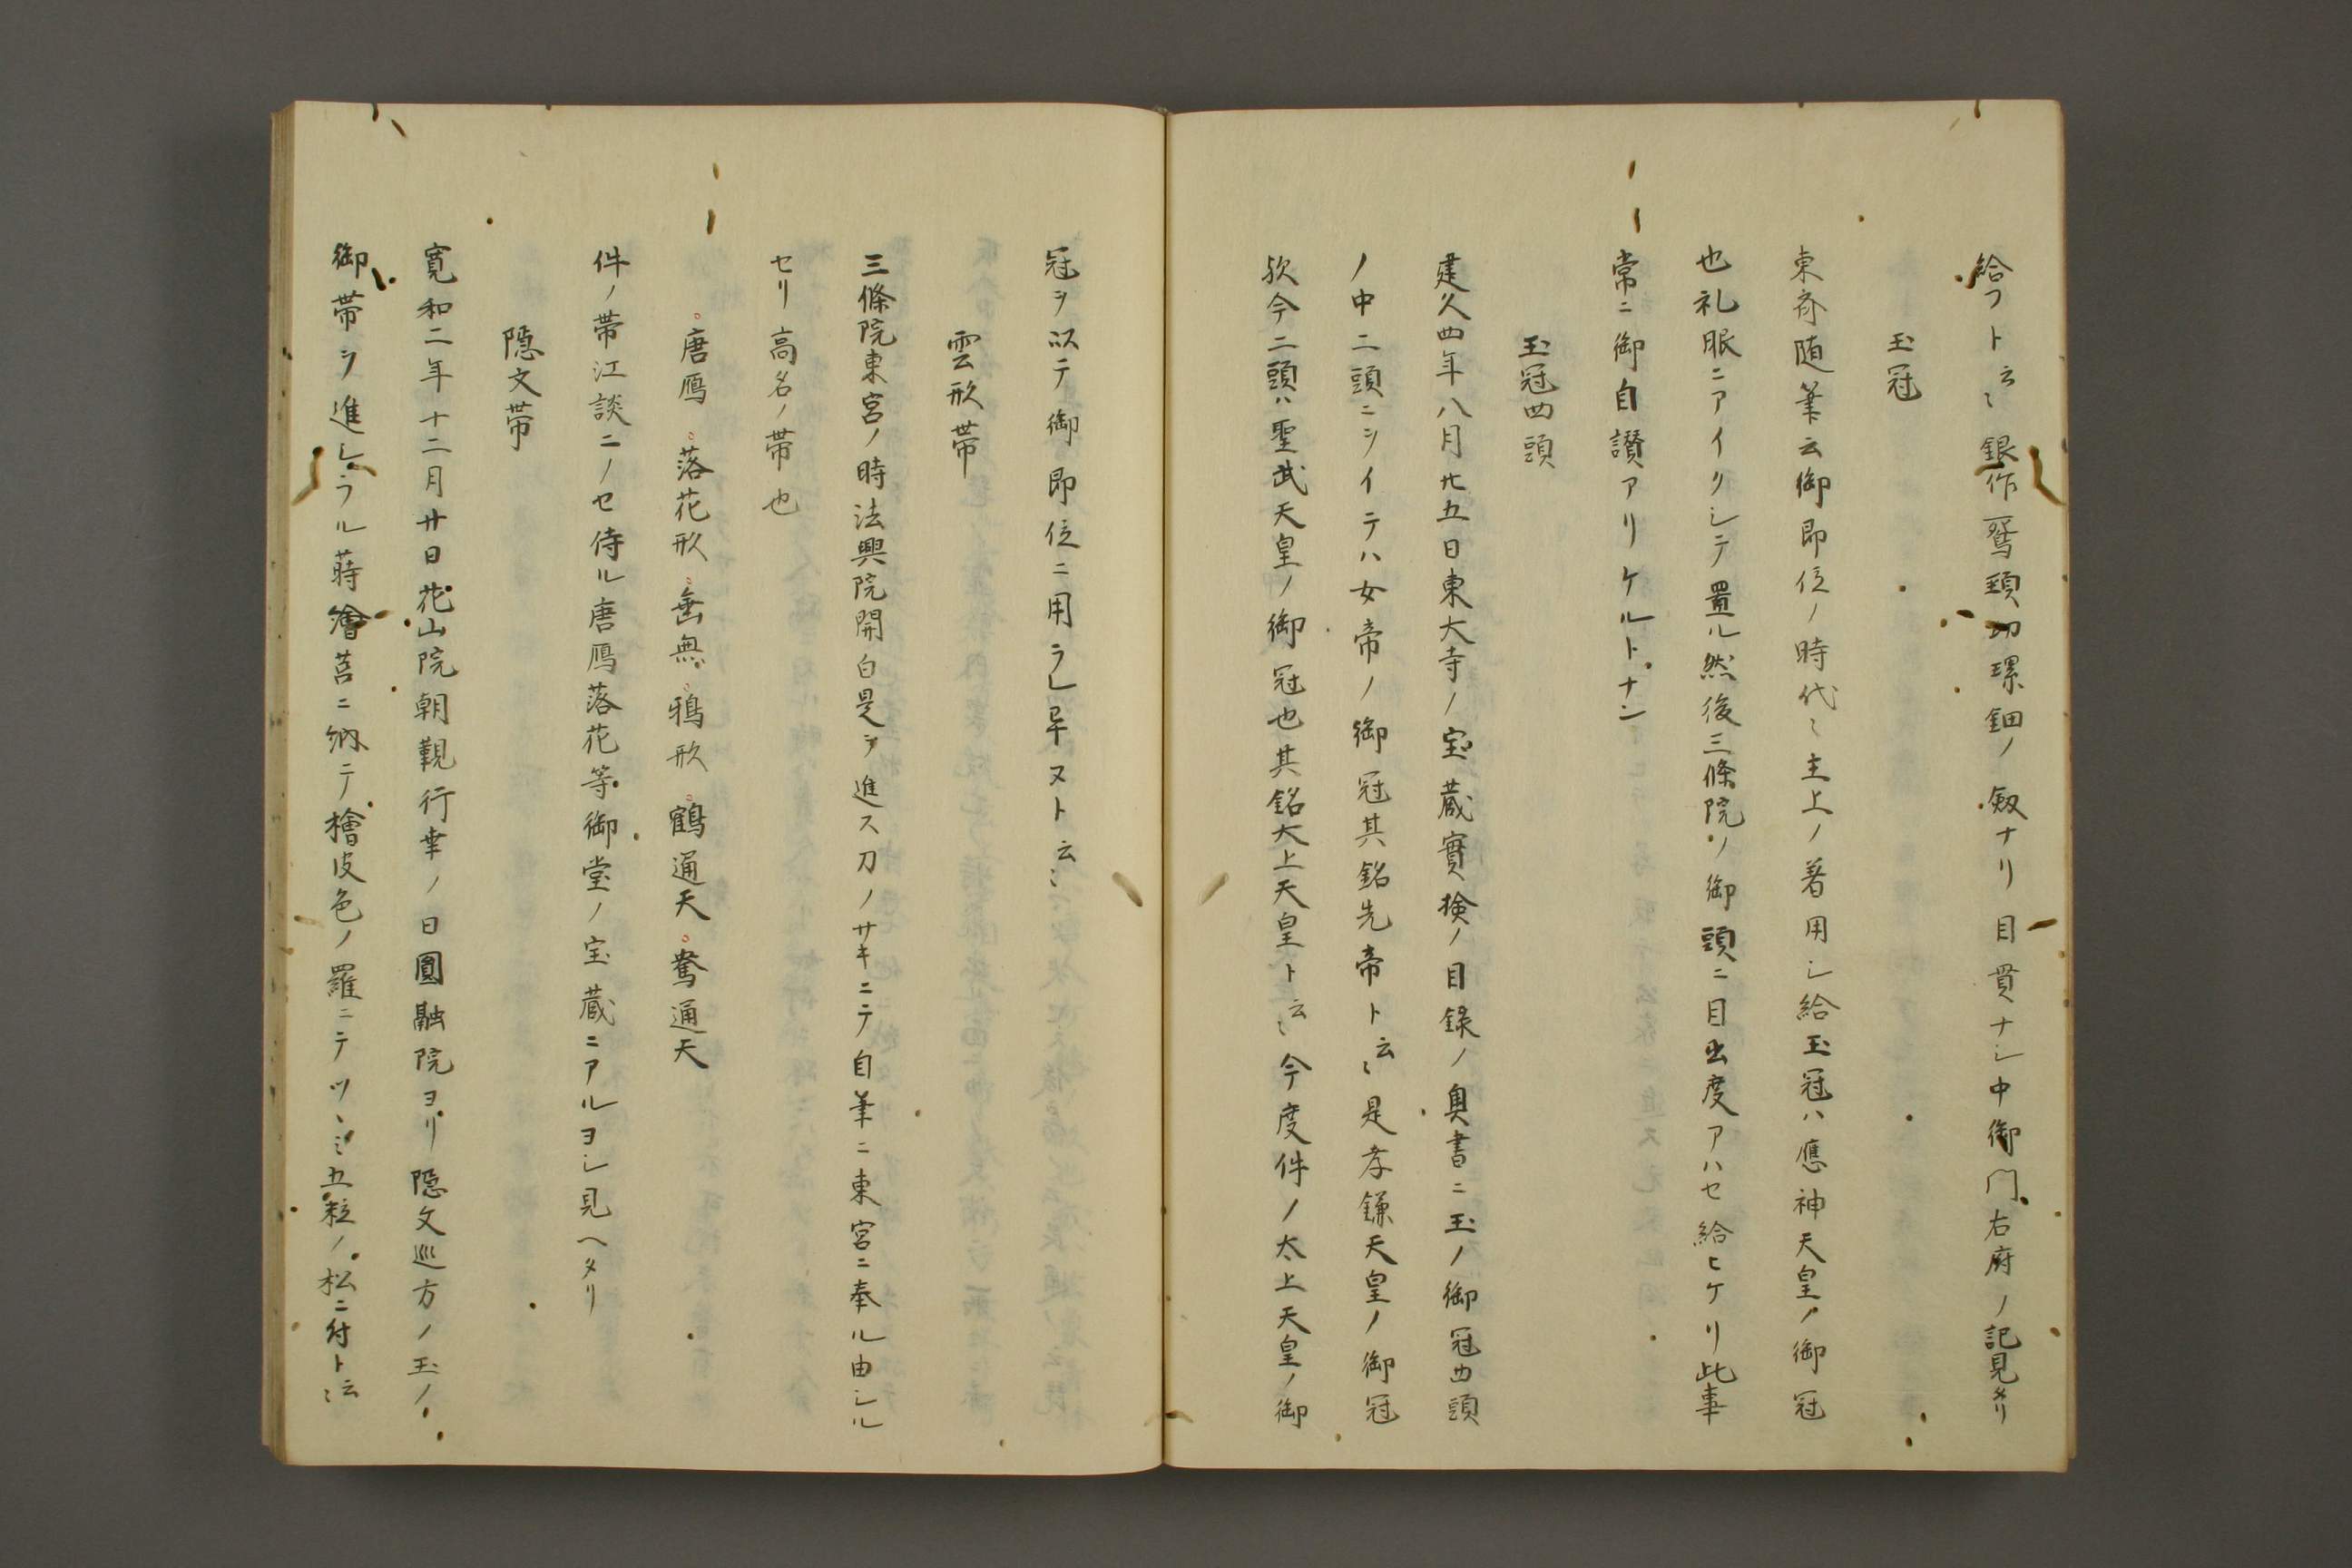 給フト云〻銀作鴛頚切螺鈿ノ釼ナリ目貫ナシ中御門右府ノ記見タリ
玉冠
東斎随筆云御即位ノ時代〻主上ノ著用シ給玉冠ハ應神天皇ノ御冠
也礼服ニアイクシテ置ル然後三條院ノ御頭ニ目出度アハセ給ヒケリ此事
常ニ御自讃アリケルトナン
玉冠四頭
建久四年八月廿五日東大寺ノ宝蔵實検ノ目録ノ奥書ニ玉ノ御冠四頭
ノ中二頭ニシイテハ女帝ノ御冠其銘先帝ト云〻是孝鎌天皇ノ御冠
欤今二頭ハ聖武天皇ノ御冠也其銘太上天皇ト云〻今度件ノ太上天皇ノ御
冠ヲ以テ御即位ニ用ラレ畢ヌト云〻
雲形帯
三條院東宮ノ時法興院開白是ヲ進ス刀ノサキニテ自筆ニ東宮ニ奉ル由シル
セリ高名ノ帯也
唐鴈 落花形 垂無 鴉形 鶴通天 鴦通天
件ノ帯江談ニノセ侍ル唐鴈落花等御堂ノ宝蔵ニアルヨシ見ヘタリ
隠文帯
寛和二年十二月廿日花山院朝覲行幸ノ日圓融院ヨリ隠文巡方ノ玉ノ
御帯ヲ進レラル蒔繪筥ニ納テ檜皮色ノ羅ニテツヽミ五粒ノ松ニ付ト云〻